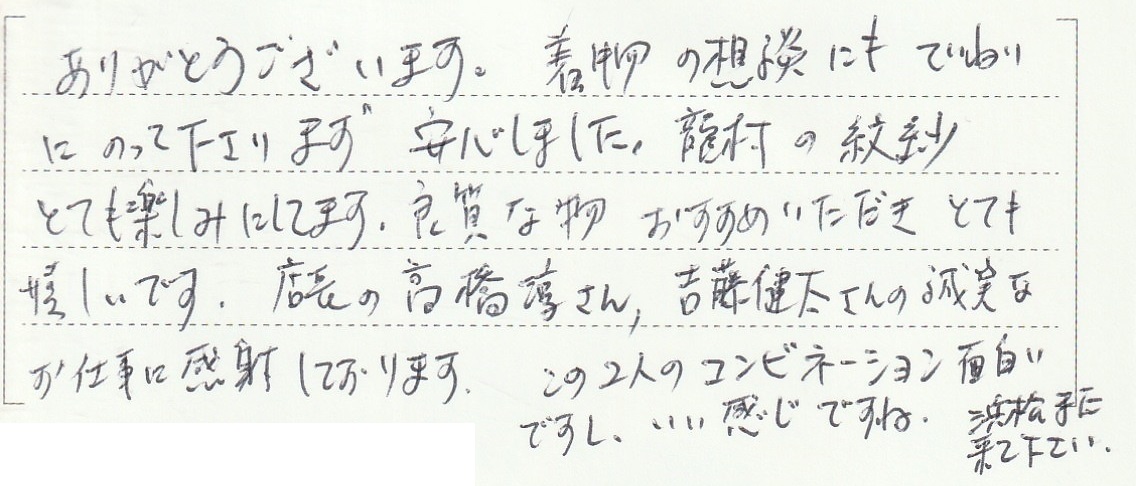 ありがとうございます。着物の想談にもていねい
にのって下さります 安心しました。龍村の紋紗
とても楽しみにしてます。良質な物 おすすめいただき とても
嬉しいです。店長の高橋淳さん、吉藤健太さんの誠実な
お仕事に感射しております。この2人のコンビネーション面白い
ですし、いい感じですね。浜松
来て下さい。